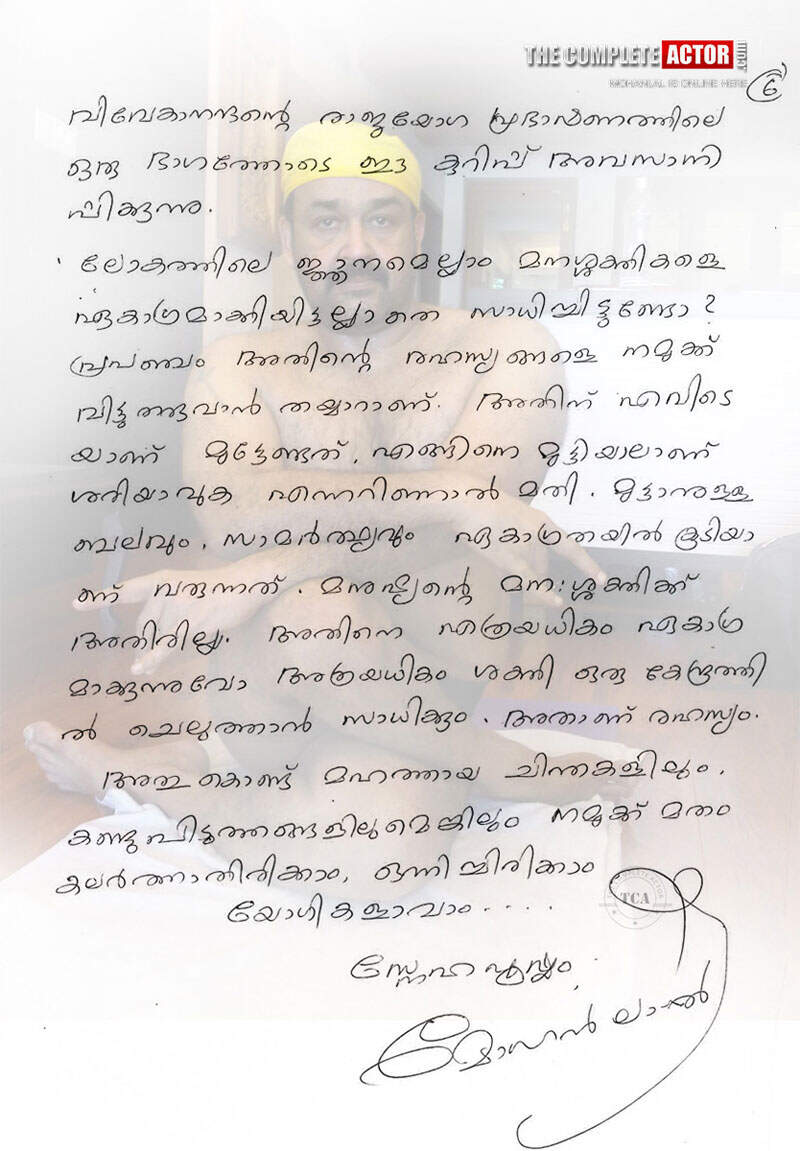 THE COMPLETE ACTOR .COM
MOHANLAL IS ONLINE HERE
6
വിവേകാനന്ദന്റെ രാജയോഗ പ്രഭാഷണത്തിലെ
ഒരു ഭാഗത്തോടെ ഈ കുറിപ്പ് അവസാനി
പ്പിക്കുന്നു.
ലോകത്തിലെ ജ്ഞാനമെല്ലാം മനശ്ശക്തികളെ
ഏകാഗ്രമാക്കിയിട്ടല്ലാതെ സാധിച്ചിട്ടുണ്ടോ?
പ്രപഞ്ചം അതിന്റെ രഹസ്യങ്ങളെ നമുക്ക്
വിട്ടുതരുവാൻ തയ്യാറാണ്. അതിന് എവിടെ
യാണ് മുട്ടേണ്ടത്, എങ്ങിനെ മുട്ടിയാലാണ്
ശരിയാവുക എന്നറിഞ്ഞാൽ മതി. മുട്ടാനുള്ള
ബലവും, സാമർത്ഥ്യവും ഏകാഗ്രതയിൽ കൂടിയാ
ണ് വരുന്നത്. മനുഷ്യന്റെ മന:ശ്ശക്തിക്ക്
അതിരില്ല. അതിനെ എത്രയധികം ഏകാഗ്ര
മാക്കുന്നുവോ അത്രയധികം ശക്തി ഒരു കേന്ദ്രത്തി
ൽ ചെലുത്താൻ സാധിക്കും. അതാണ് രഹസ്യം.
അതുകൊണ്ട് മഹത്തായ ചിന്തകളിലും,
കണ്ടുപിടുത്തങ്ങളിലുമെങ്കിലും നമുക്ക് മതം
കലർത്താതിരിക്കാം, ഒന്നിച്ചിരിക്കാം
യോഗികളാവാം....
TCA
സ്നേഹപൂർവ്വം,
മോഹൻലാൽ